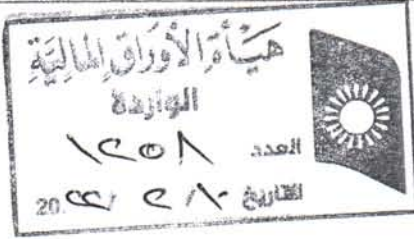 هَيْأَةُ الْأَوْرَاقِ الْمَالِيَّةِ
الواردة
العدد ١٢٥٨
التاريخ ١٠ / ٢ / 20٢٢